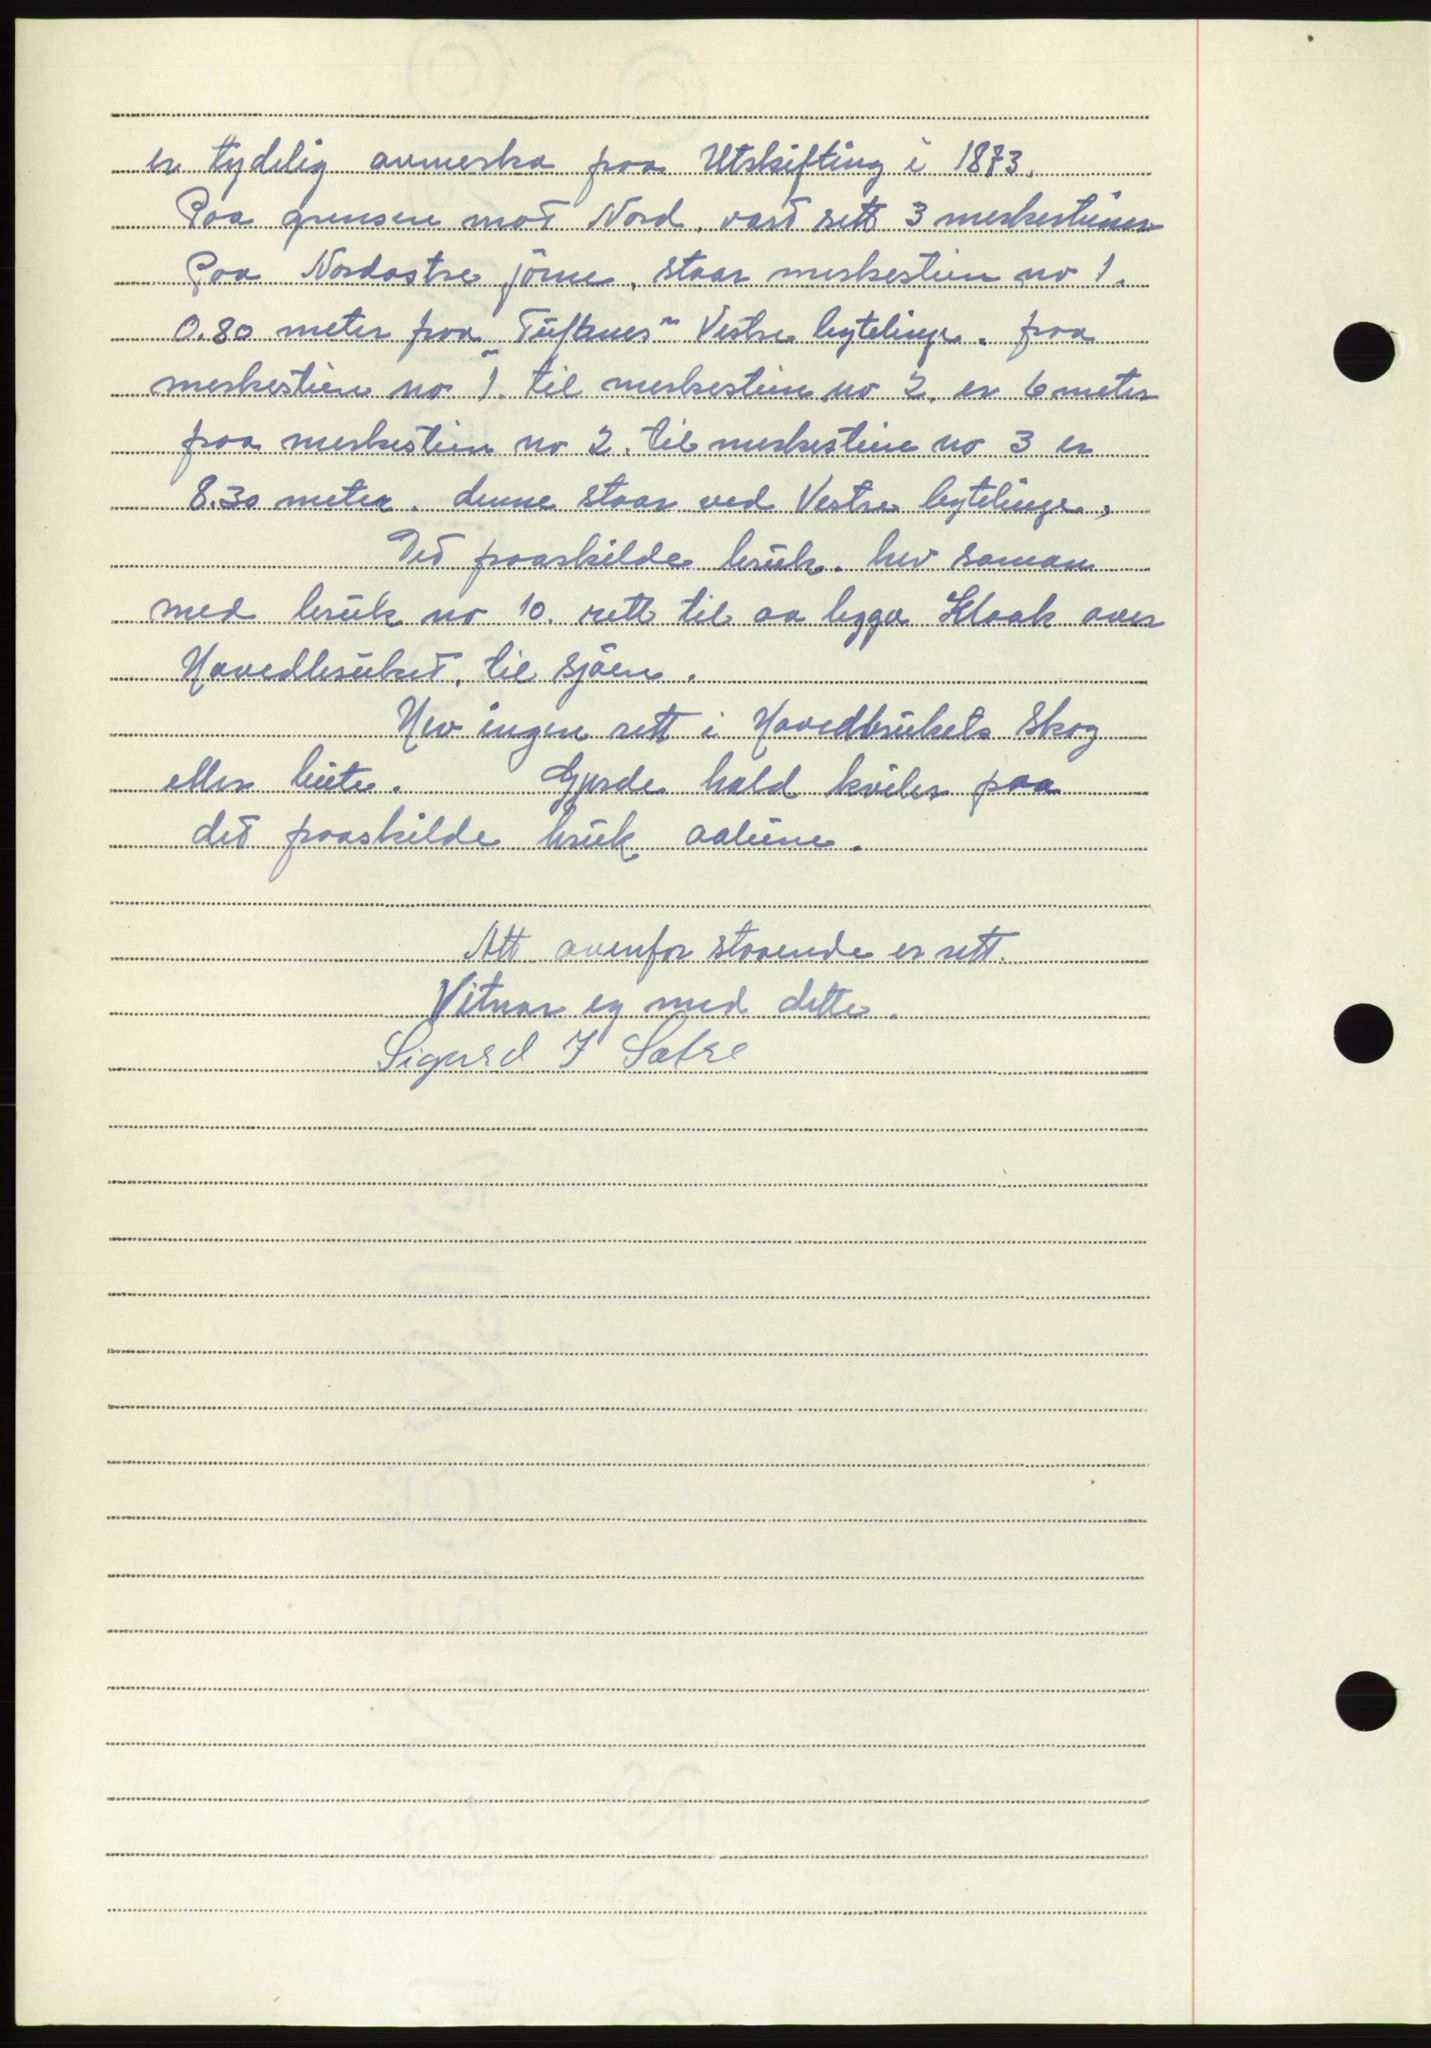 er tydelig avmerka fraa Utskifting i 1873.
Paa grensene mot Nord, vart sett 3 merkesteiner
Paa Nordastre jörne, staar merkestein no 1.
0.80 meter fraa "Tuftenes" Vestre bytelinje. fraa
merkestein no 1. til merkestein no 2. er 6 meter
fraa merkestein no 2. til merkestein no 3 er
8.30 meter. denne staar ved Vestre bytelinje,
Det fraaskilde bruk. hev saman
med bruk no 10. rett til aa leggа Kloak over
Hovedbruket, til sjöen.
Hev ingen rett i Hovedbrukets Skog
eller beite. Gjerde hald kviler paa
det fraaskilde bruk aaleine.
Att ovenfor staaende er rett.
Vitnar eg med dette.
Sigurd I Satre